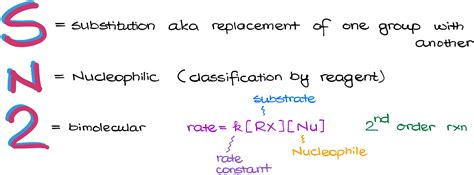 S = substitution aka replacement of one group with
another
N = Nucleophilic (classification by reagent)
substrate
2 = bimolecular rate = k[RX][Nu] 2nd order rxn
rate
constant
Nucleophile